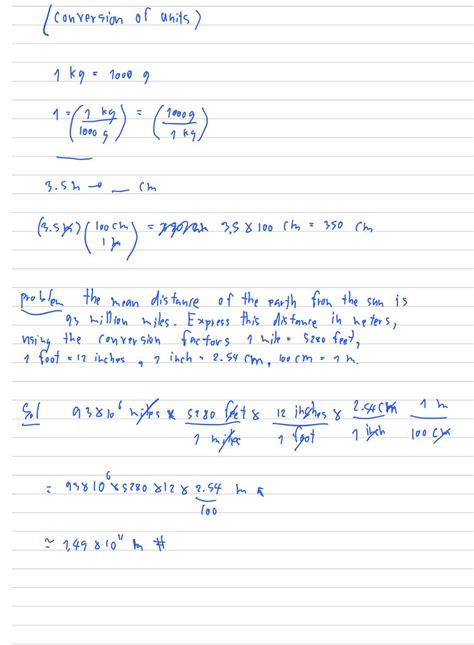 (conversion of units)
1 kg = 1000 g
1 = (1 kg / 1000 g) = (1000 g / 1 kg)
3.5 m → __ cm
(3.5 m) (100 cm / 1 m) = 3.5 × 100 cm = 350 cm
problem the mean distance of the earth from the sun is
93 million miles. Express this distance in meters,
using the conversion factors 1 mile = 5280 feet,
1 foot = 12 inches, 1 inch = 2.54 cm, 100 cm = 1 m.
Sol 93×10⁶ miles × 5280 feet / 1 miles × 12 inches / 1 foot × 2.54 cm / 1 inch 1 m / 100 cm
= 93×10⁶ × 5280 × 12 × 2.54 / 100 m
≈ 1,49 × 10¹¹ m #